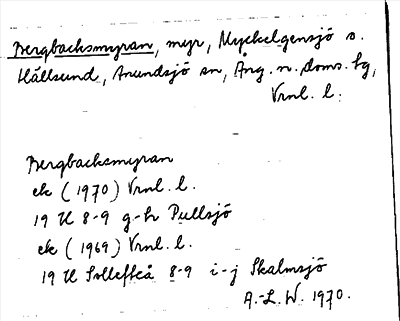 Bergbacksmyran, myr, Myckelgensjö o.
Hällsund, Anundsjö sn, Ång. n. doms. fg,
Vrnl. l.
Bergbacksmyran
ek (1970) Vrnl. l.
19 H 8-9 g-h Pullsjö
ek (1969) Vrnl. l.
19 H Sollefteå 8-9 i-j Skalmsjö
A.-L. W. 1970.